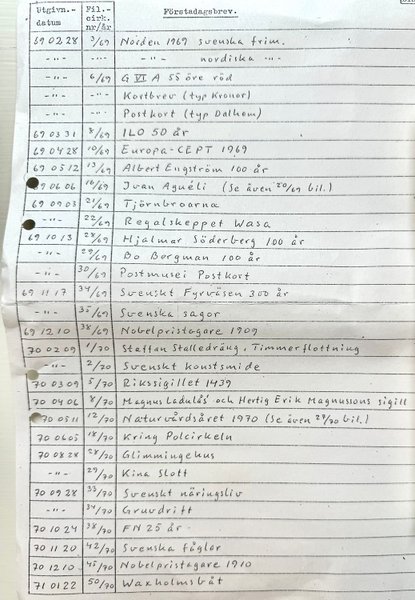 Utgivn.- datum | Fil.- cirk. nr/år | Förstadagsbrev.
69 02 28 | 3/69 | Norden 1969 svenska frim.
-"- | -"- | -"- nordiska -"-
-"- | 6/69 | G VI A 55 öre röd
-"- | Kortbrev (typ Kronor)
-"- | Postkort (typ Dalhem)
69 03 31 | 8/69 | ILO 50 år
69 04 28 | 10/69 | Europa-CEPT 1969
69 05 12 | 13/69 | Albert Engström 100 år
69 06 06 | 16/69 | Ivan Aguéli (Se även 20/69 bil.)
69 09 03 | 21/69 | Tjörnbroarna
-"- | 22/69 | Regalskeppet Wasa
69 10 13 | 28/69 | Hjalmar Söderberg 100 år
-"- | 29/69 | Bo Bergman 100 år
-"- | 30/69 | Postmusei Postkort
69 11 17 | 34/69 | Svenskt Fyrväsen 300 år
-"- | 35/69 | Svenska sagor
69 12 10 | 38/69 | Nobelpristagare 1909
70 02 09 | 1/70 | Staffan Stalledräng, Timmerflottning
-"- | 2/70 | Svenskt konstsmide
70 03 09 | 5/70 | Rikssigillet 1439
70 04 06 | 8/70 | Magnus Ladulås' och Hertig Erik Magnussons sigill
70 05 11 | 12/70 | Naturvårdsåret 1970 (Se även 27/70 bil.)
70 06 05 | 18/70 | Kring Polcirkeln
70 08 28 | 28/70 | Glimmingehus
-"- | 29/70 | Kina Slott
70 09 28 | 33/70 | Svenskt näringsliv
-"- | 34/70 | Gruvdrift
70 10 24 | 38/70 | FN 25 år
70 11 20 | 42/70 | Svenska fåglar
70 12 10 | 45/70 | Nobelpristagare 1910
71 01 22 | 50/70 | Waxholmsbåt